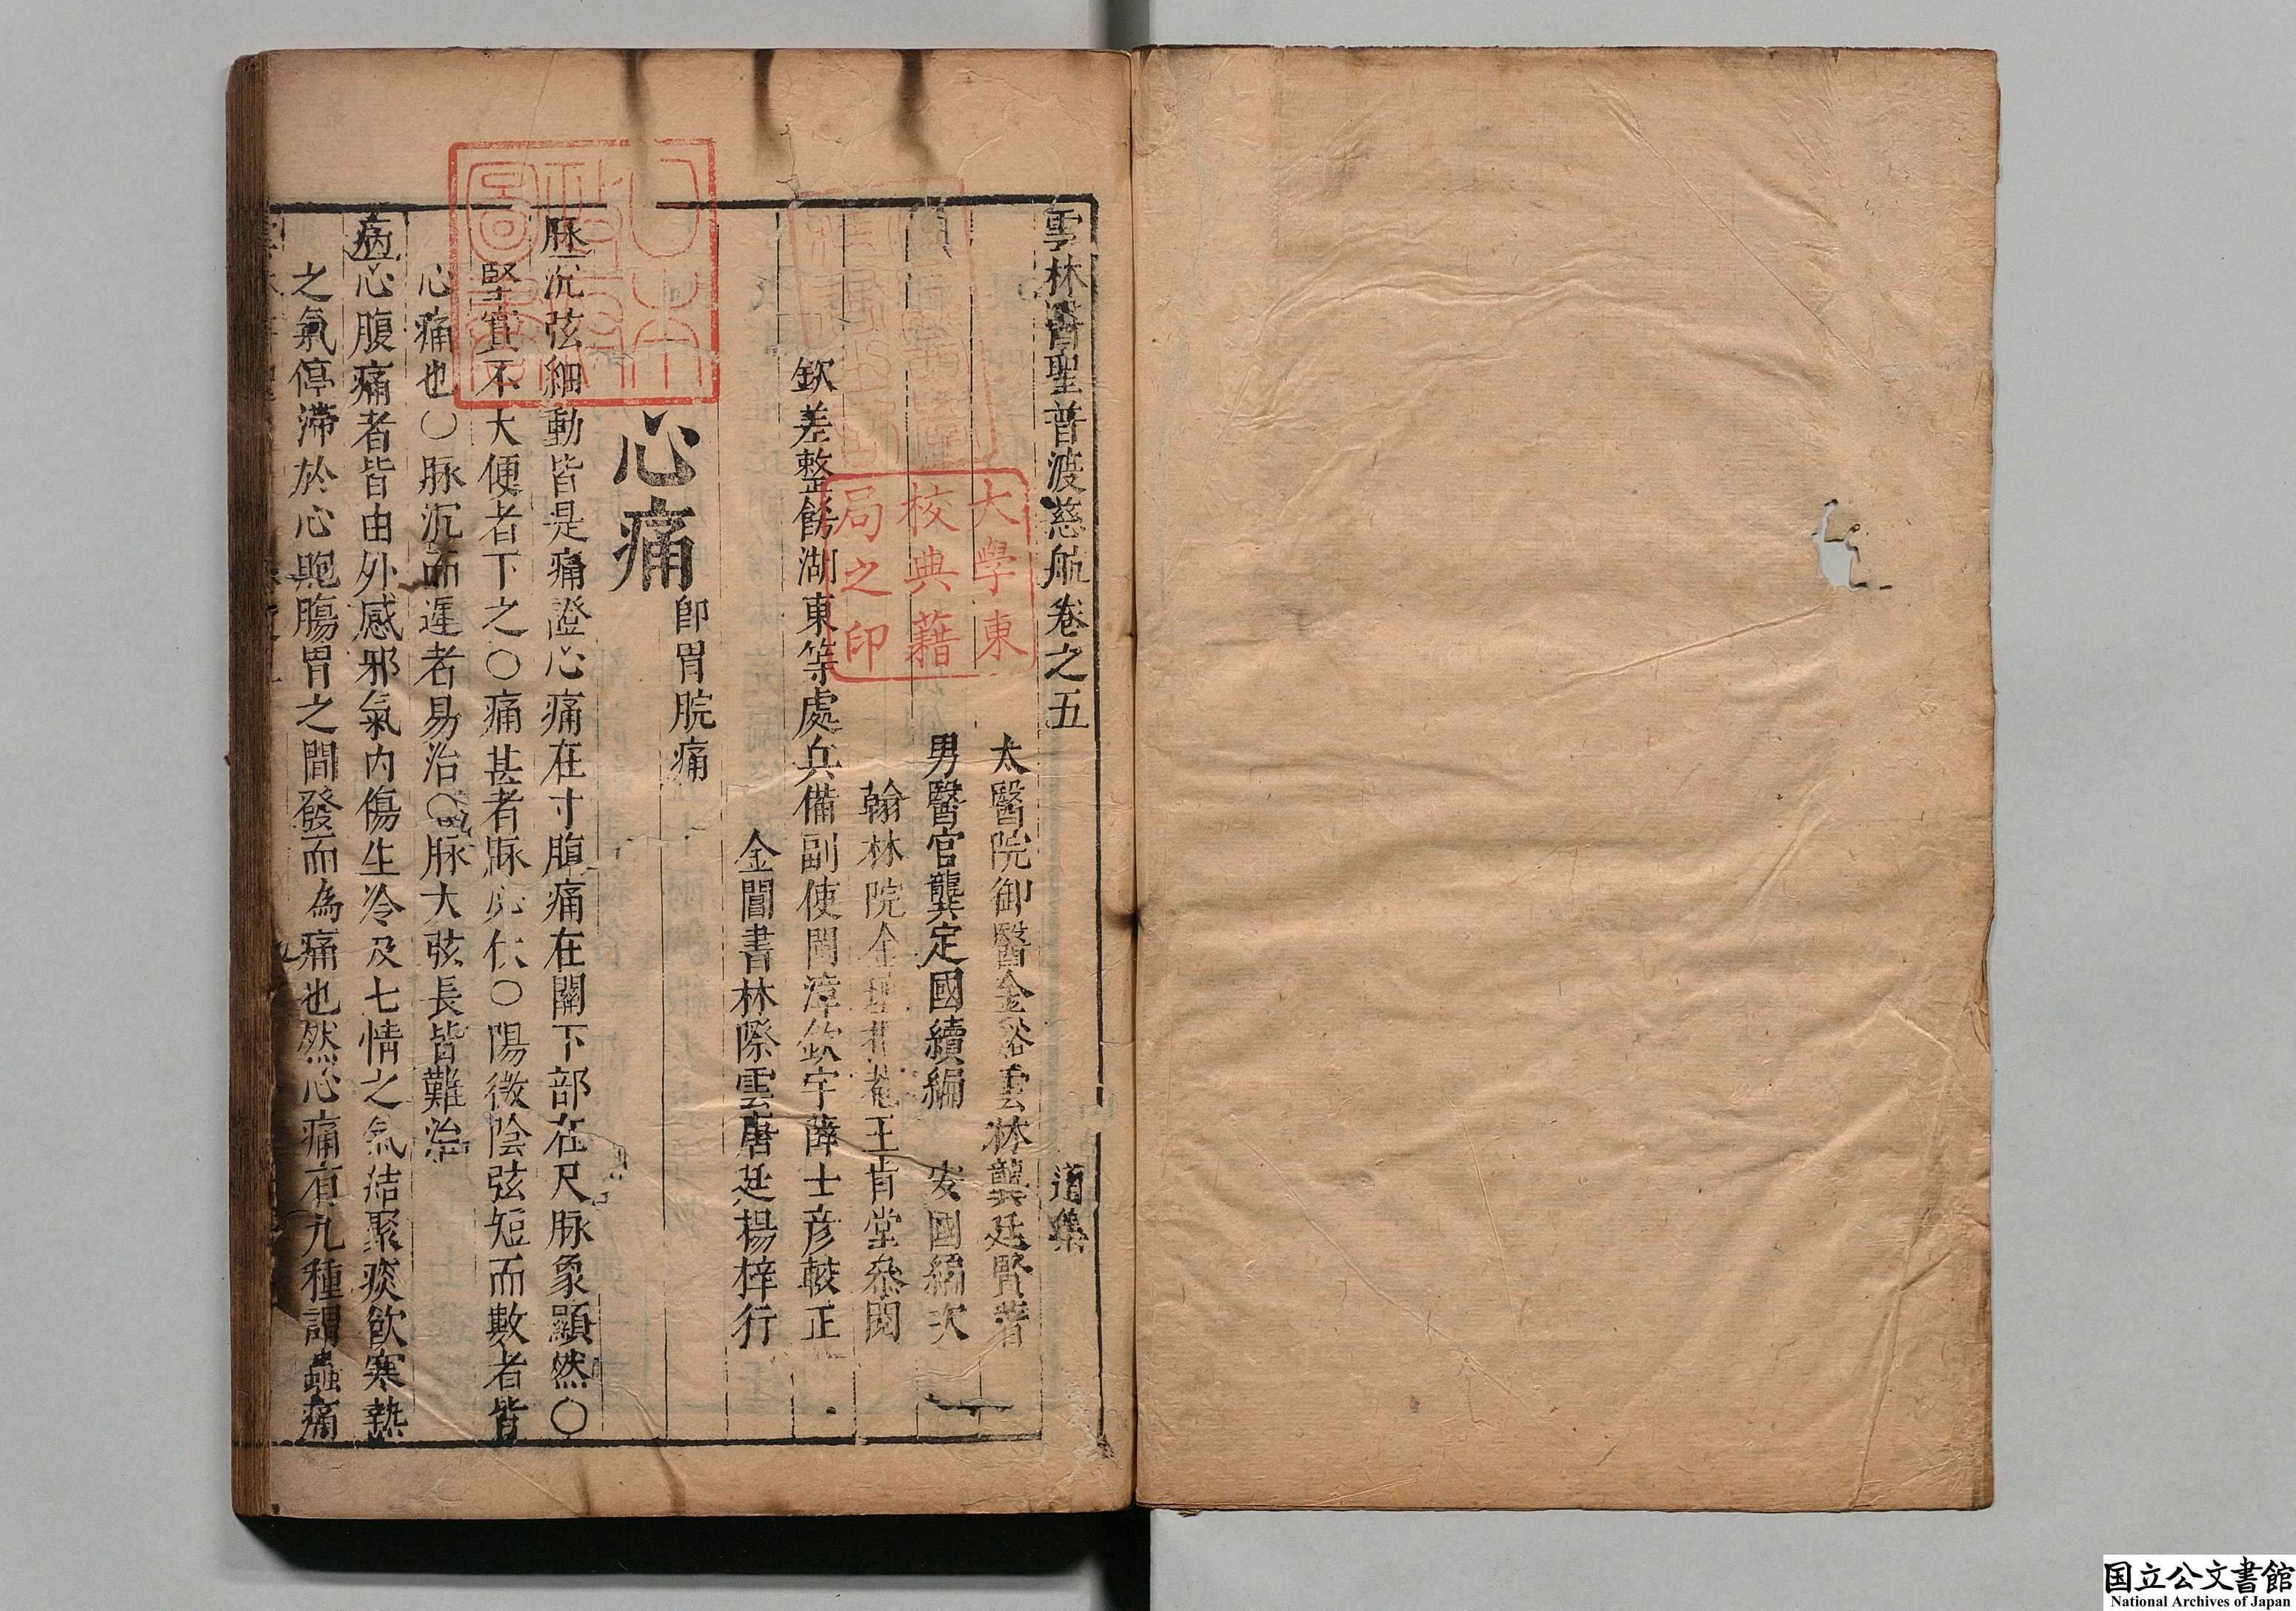 雲林醫聖普渡慈航卷之五　道集
太醫院御醫金谿雲林龔廷賢著
男醫官龔定國續編　安國編次
翰林院金壇王肯堂叅閱
欽差整飭湖東等處兵備副使閩漳欽宇薛士彥較正
金閶書林際雲唐廷楊梓行
心痛
即胃脘痛
脉沉弦細動皆是痛證心痛在寸腹痛在關下部在尺脉象顯然〇
堅實不大便者下之〇痛甚者脉必伏〇陽微陰弦短而數者皆
心痛也〇脉沉而遲者易治〇脉大弦長皆難治
病心腹痛者皆由外感邪氣內傷生冷及七情之氣結聚痰飲寒熱
之氣停滯於心胞腸胃之間發而為痛也然心痛有九種謂蟲痛
大學東
校典藉
局之印
国立公文書館
National Archives of Japan